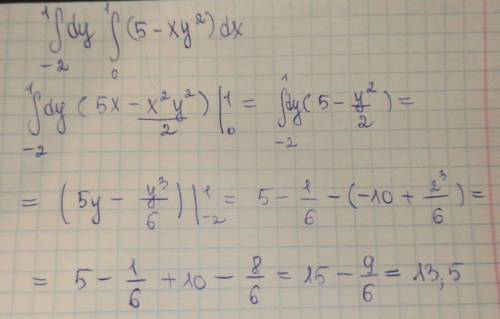 ∫_{-2}^{1} dy ∫_{0}^{1} (5 - xy²) dx
∫_{-2}^{1} dy (5x - x²y²/2) |_{0}^{1} = ∫_{-2}^{1} dy (5 - y²/2) =
= (5y - y³/6) |_{-2}^{1} = 5 - 1/6 - (-10 + 2³/6) =
= 5 - 1/6 + 10 - 8/6 = 15 - 9/6 = 13,5